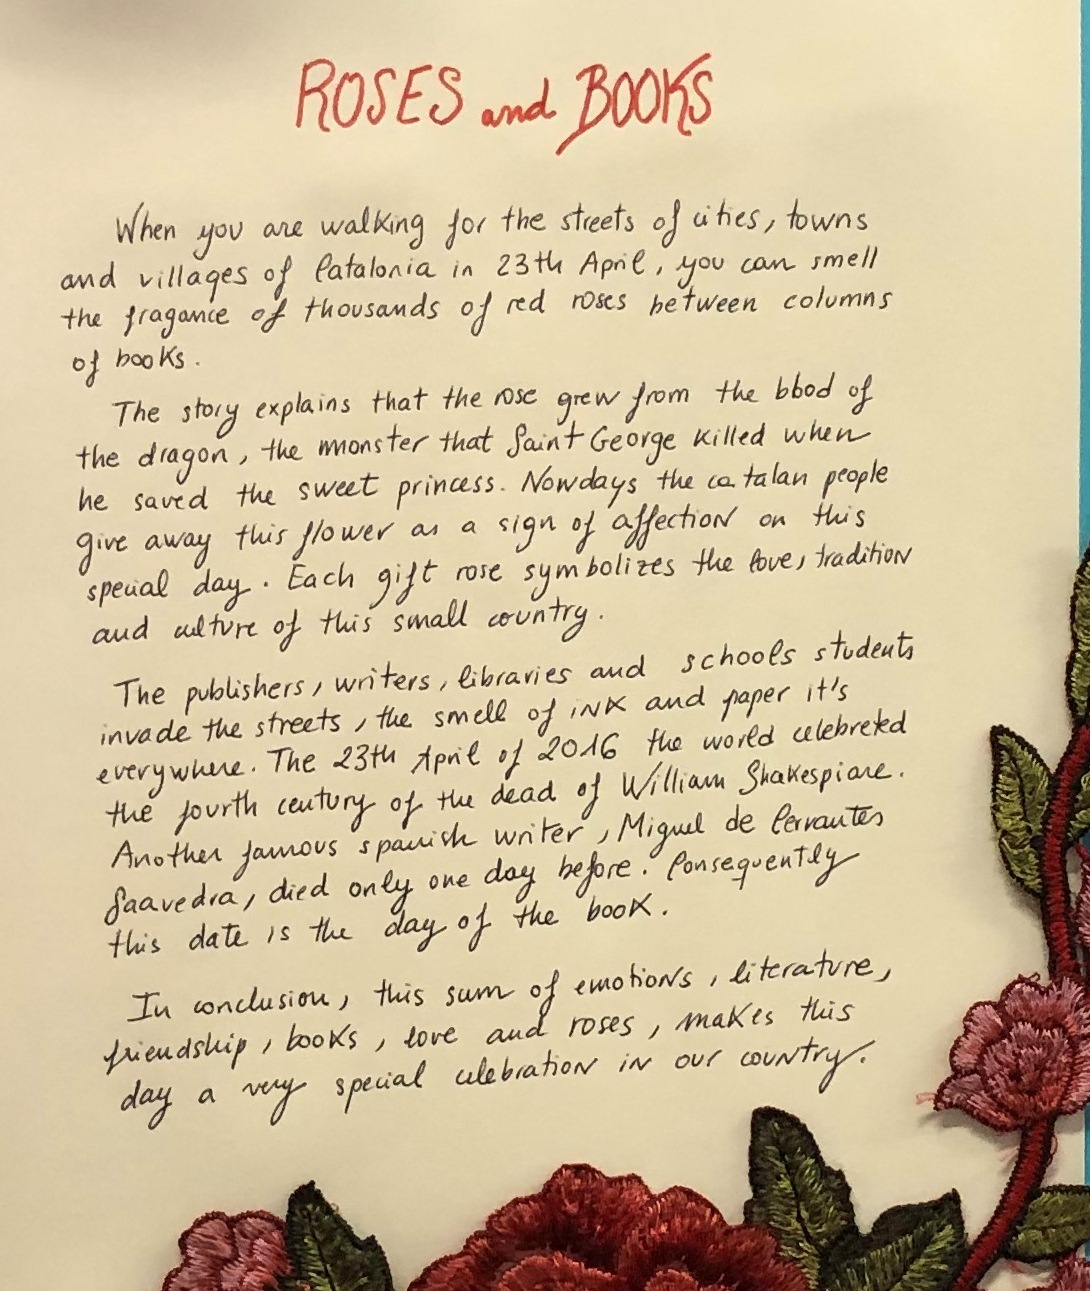 ROSES and BOOKS
When you are walking for the streets of cities, towns
and villages of Catalonia in 23th April, you can smell
the fragance of thousands of red roses between columns
of books.
The story explains that the rose grew from the blood of
the dragon, the monster that Saint George killed when
he saved the sweet princess. Nowdays the catalan people
give away this flower as a sign of affection on this
special day. Each gift rose symbolizes the love, tradition
and culture of this small country.
The publishers, writers, libraries and schools students
invade the streets, the smell of ink and paper it's
everywhere. The 23th April of 2016 the world celebreted
the fourth century of the dead of William Shakespiare.
Another famous spanish writer, Miguel de Cervantes
Saavedra, died only one day before. Consequently
this date is the day of the book.
In conclusion, this sum of emotions, literature,
friendship, books, love and roses, makes this
day a very special celebration in our country.